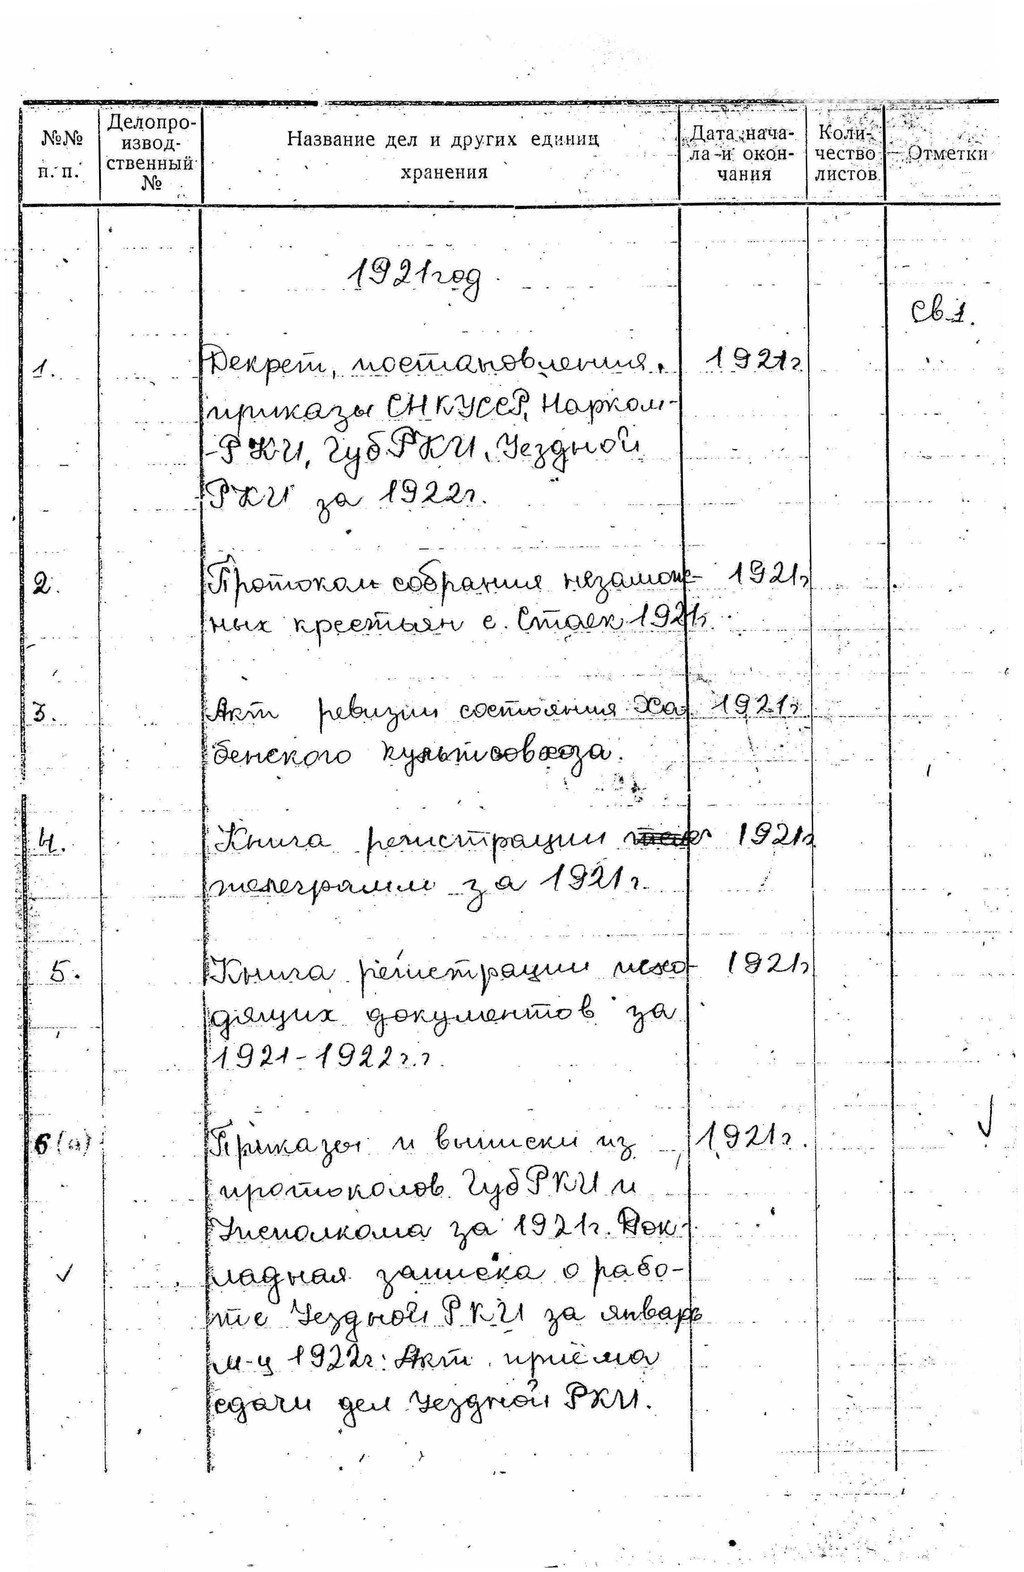 №№ п. п.
Делопро-
извод-
ственный
№
Название дел и других единиц
хранения
Дата нача-
ла и окон-
чания
Коли-
чество
листов
Отметки
1921 год
Св. 1.
1. Декрет, постановления, 1921г
приказы СНКУССР, Нарком-
-РКИ, ГубРКИ, Уездной
РКИ за 1922г.
2. Протокол собрания незамож- 1921г
ных крестьян с. Стаек 1921г.
3. Акт ревизии состояния Ха- 1921г
бенского культсовхоза.
4. Книга регистрации 1921г
телеграмм за 1921г.
5. Книга регистрации исхо- 1921г
дящих документов за
1921-1922г.г.
6(а) Приказы и выписки из 1921г.
протоколов ГубРКИ и
Исполкома за 1921г. Док-
ладная записка о рабо-
те Уездной РКИ за январь
м-ц 1922г. Акт приёма
сдачи дел Уездной РКИ.